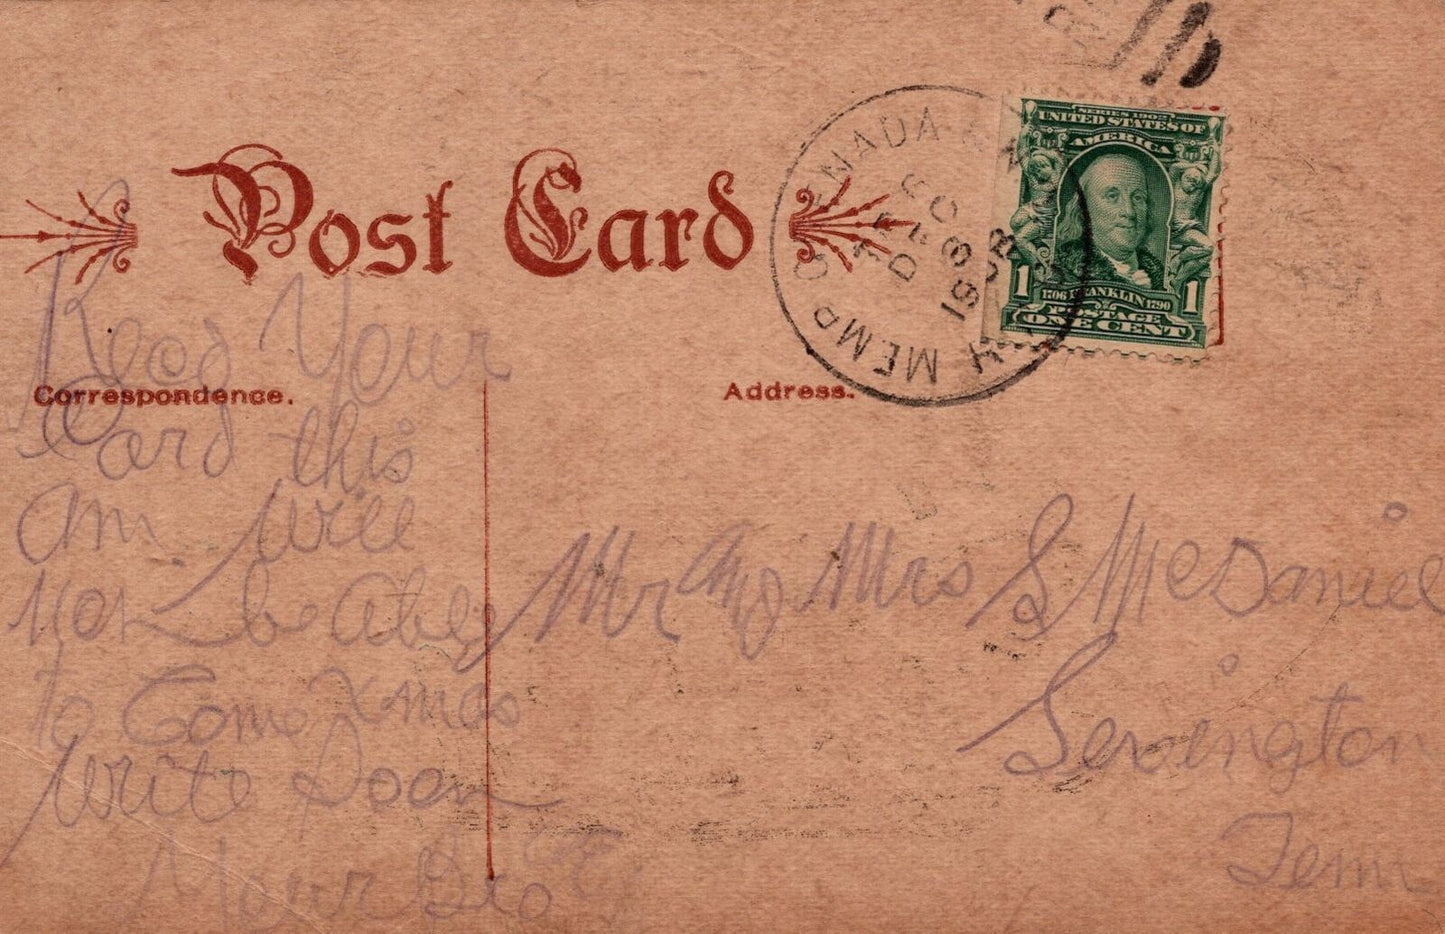 Post Card
SERIES 1902
UNITED STATES OF
AMERICA
1706 FRANKLIN 1790
POSTAGE
1 1
ONE CENT
GRENADA & MEMP
DEC
18
1908
Correspondence.
Address.
Your
Card this
am. Will
Not be Able
to Come Xmas
Write Soon
Your Bro
Mr and Mrs S McDaniel
Tenn